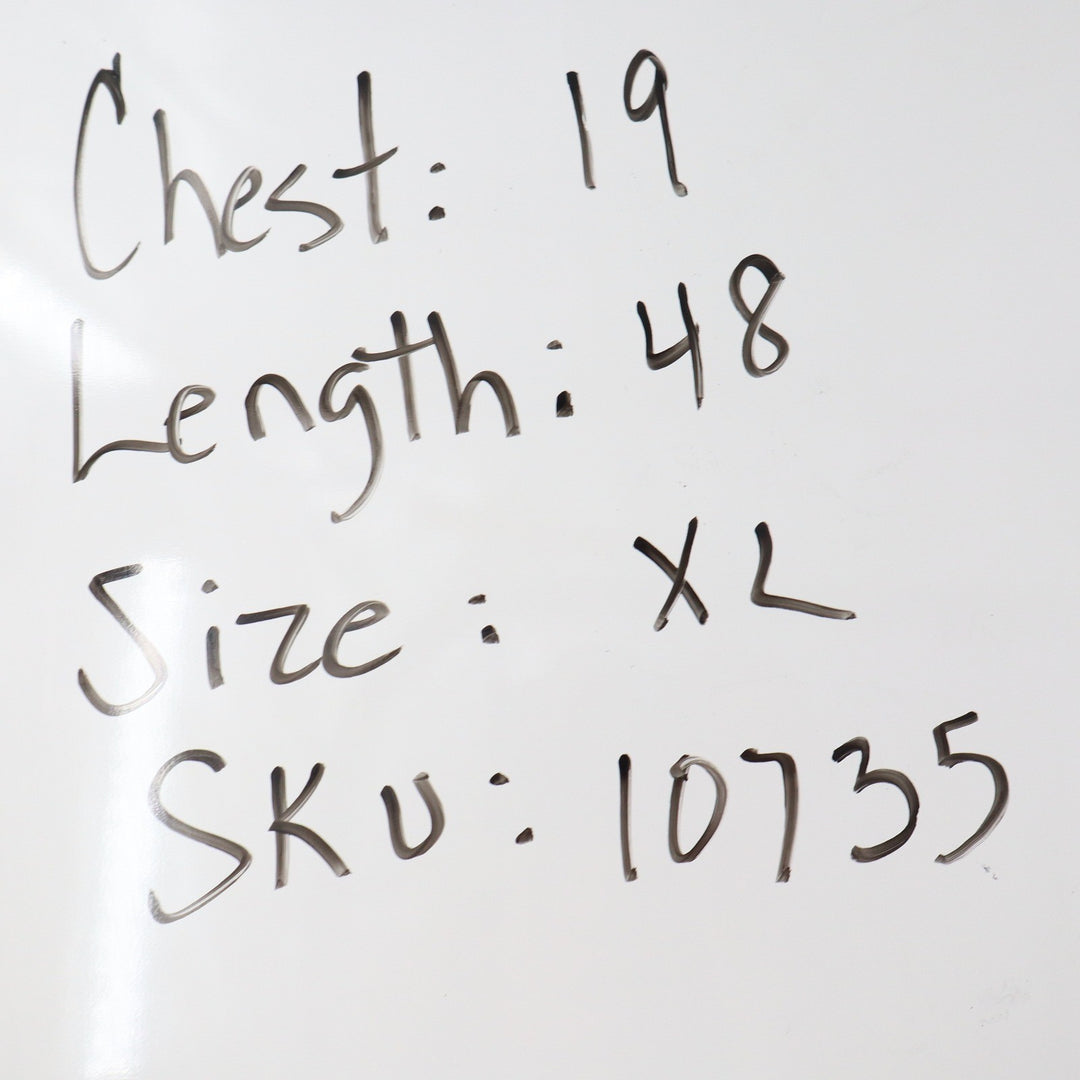 Chest: 19
Length: 48
Size: XL
SKU: 10735